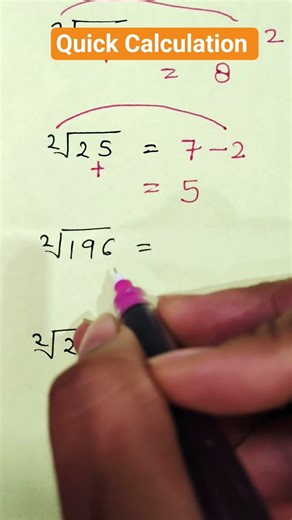 Quick Calculation
2
= 8
²√25 = 7-2
+
= 5
²√196 =
²√2